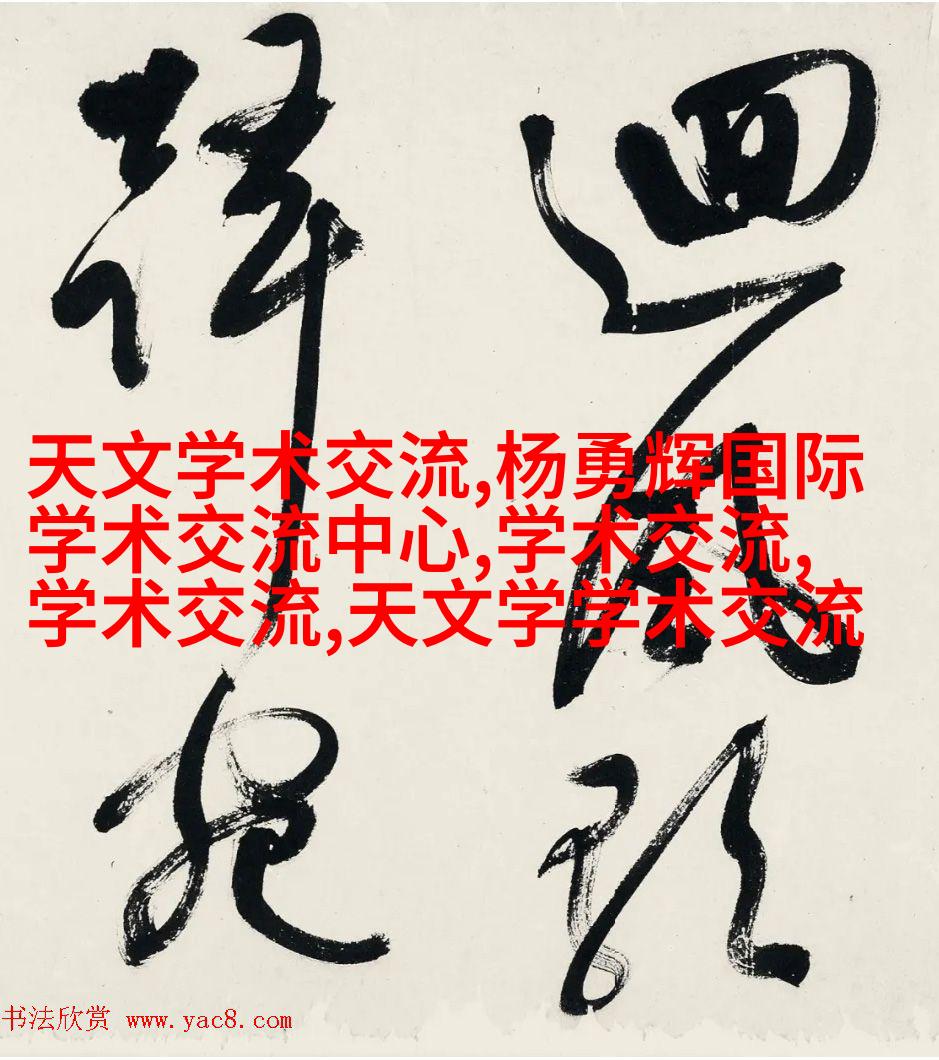 迴風
天文学术交流,杨勇辉国际
学术交流中心,学术交流,
学术交流,天文学学术交流
书法欣赏 www.yac8.com